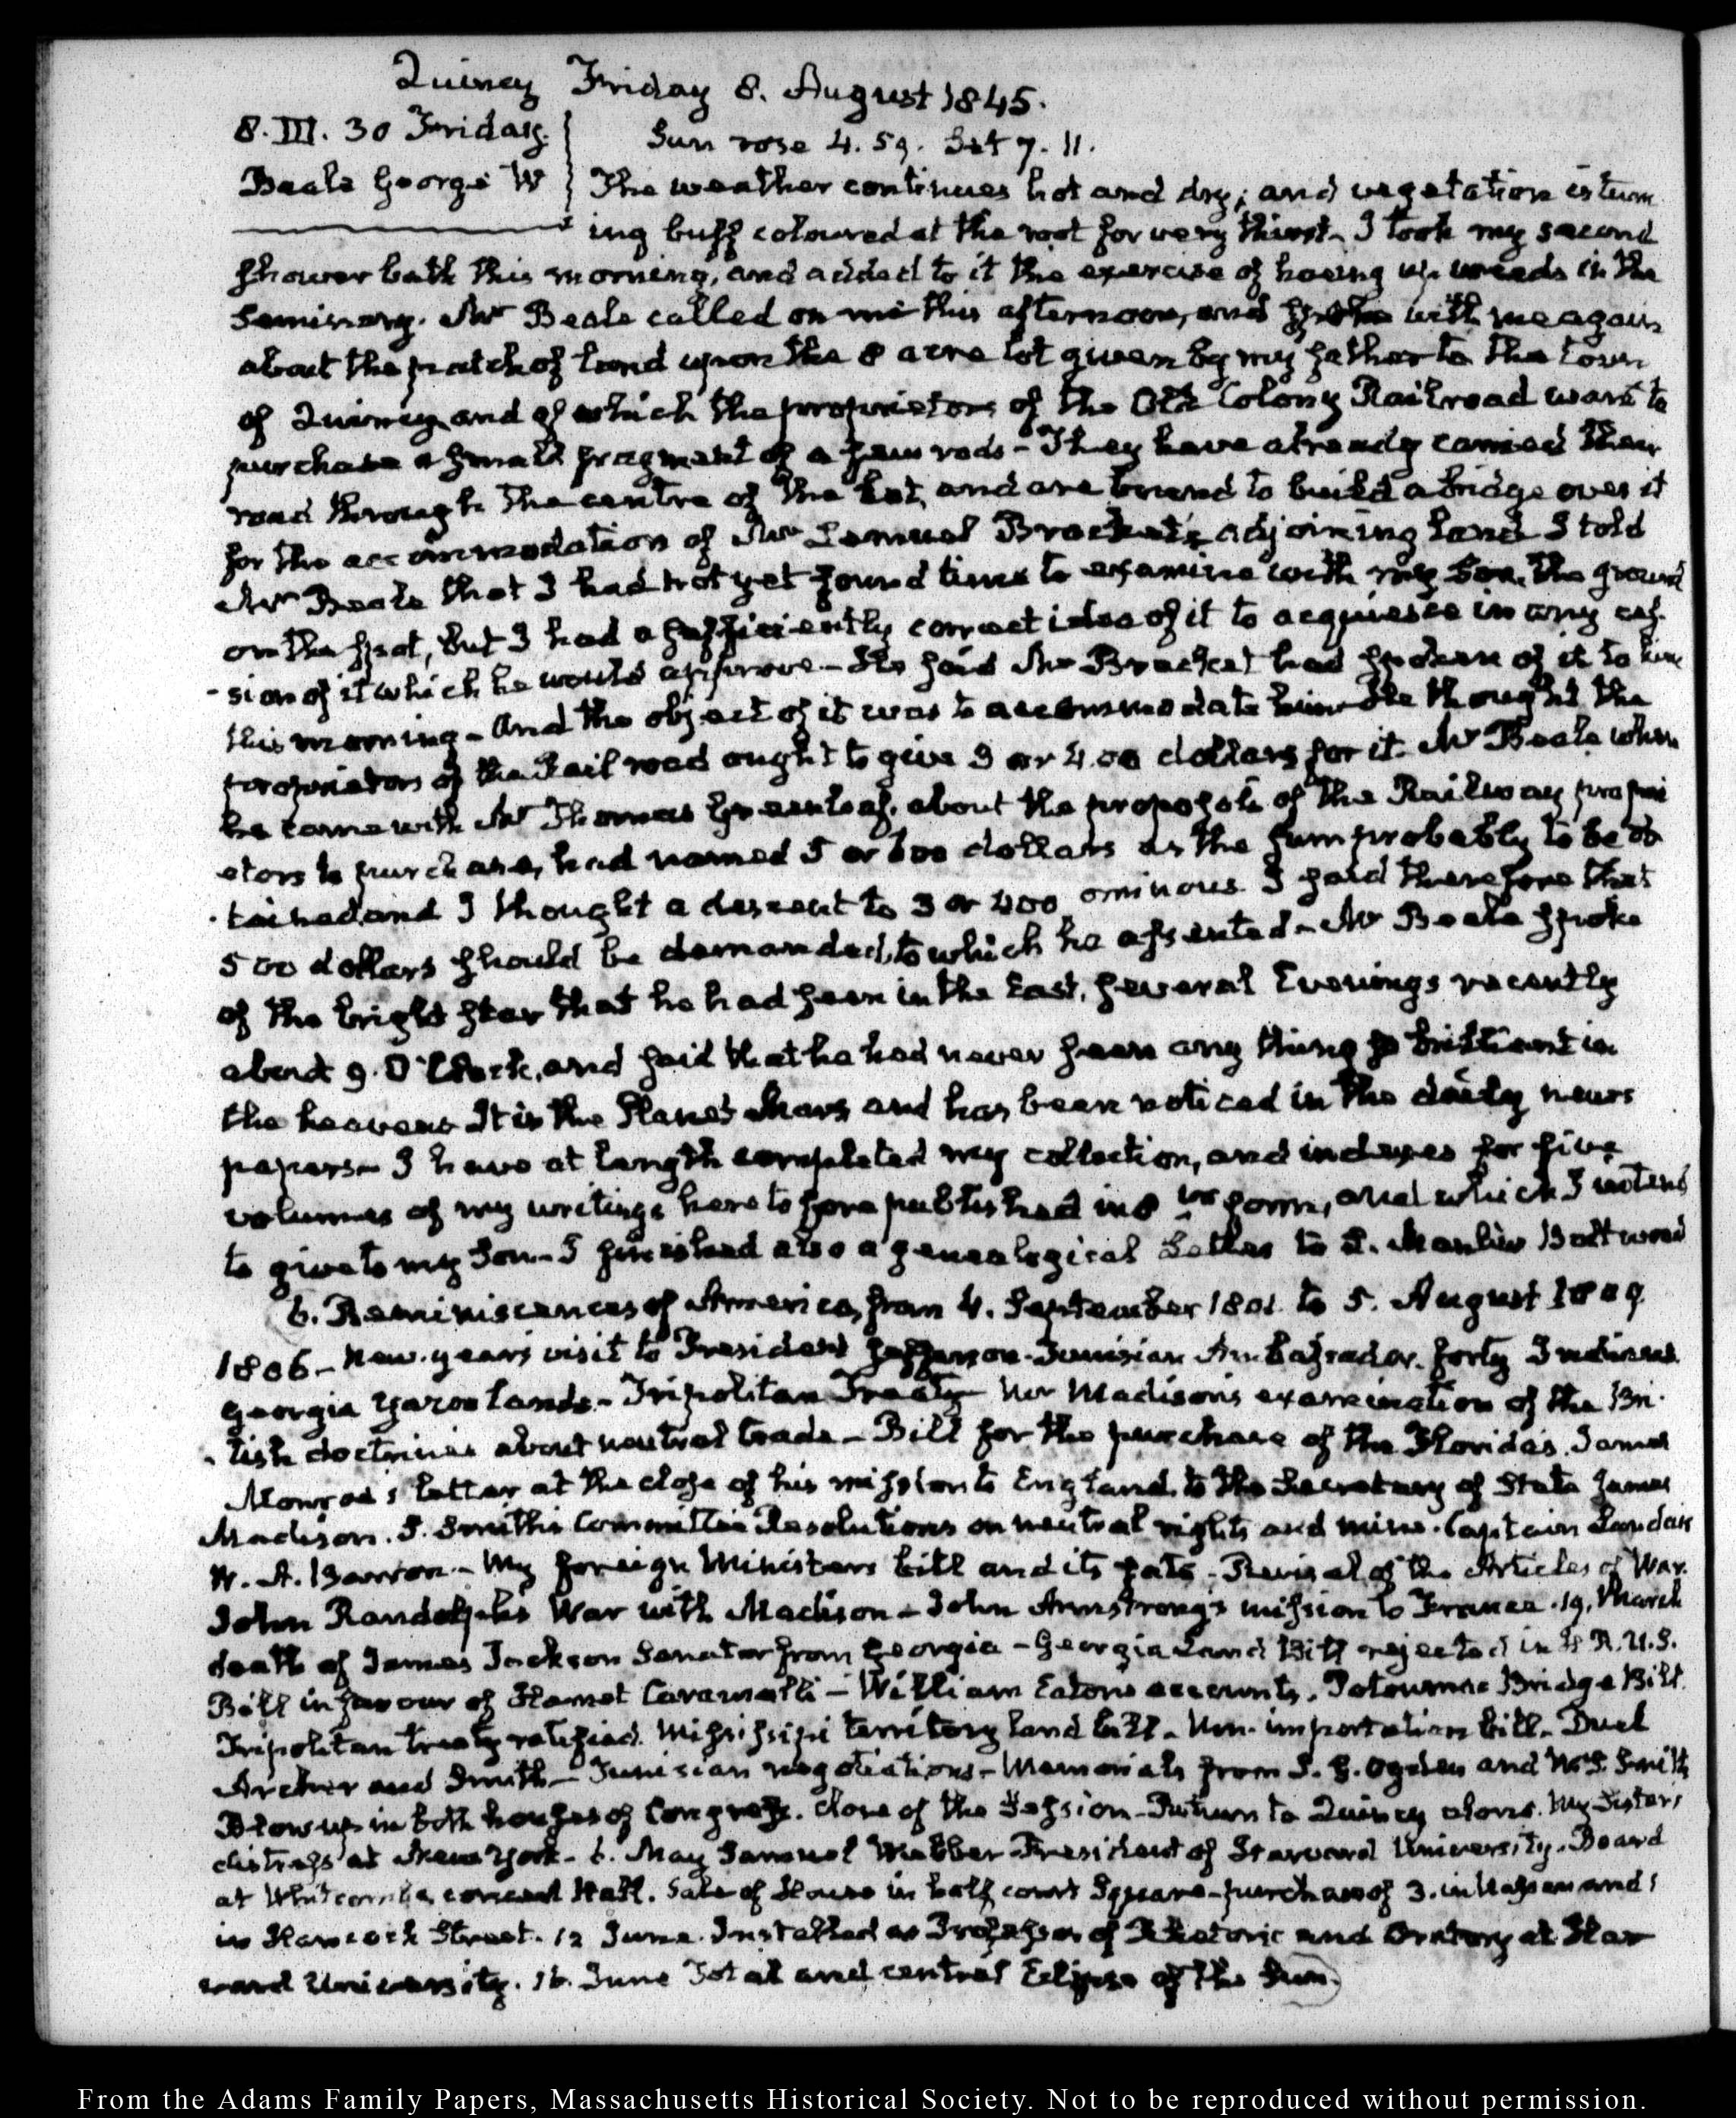 Quincy Friday 8. August 1845.
8. III. 30 Friday.
Sun rose 4. 59. Set 7. 11.
Beale George W
The weather continues hot and dry; and vegetation is turn
ing buff coloured at the root for very thirst. I took my second
shower bath this morning, and added to it the exercise of hoeing up weeds in the
Seminary. Mr Beale called on me this afternoon, and spoke with me again
about the patch of land upon the 8 acre lot given by my father to the town
of Quincy, and of which the proprietors of the Old Colony Railroad want to
purchase a small fragment of a few rods - They have already carried their
road through the centre of the lot, and are bound to build a bridge over it
for the accommodation of Mr Lemuel Bracket's adjoining land I told
Mr Beale that I had not yet found time to examine with my Son, the ground
on the spot, but I had a sufficiently correct idea of it to acquiesce in any
sion of it which he would approve - He said Mr Bracket had spoken of it to him
this morning - and the object of it was to accommodate him He thought the
proprietors of the Rail road ought to give 3 or 4.00 dollars for it. Mr Beale when
he came with Mr Thomas Greenleaf, about the proposals of the Railway propri
etors to purchase, had named 5 or 600 dollars as the sum probably to be ob
- tained, and I thought a descent to 3 or 400 ominous I said therefore that
500 dollars should be demanded, to which he assented - Mr Beale spoke
of the bright star that he had seen in the East, several Evenings recently
about 9. O'Clock, and said that he had never seen any thing so brilliant in
the heavens It is the Planet Mars and has been noticed in the daily news
papers - I have at length completed my collection, and indexes for five
volumes of my writings heretofore published in 8 vo form, and which I intend
to give to my Son - I finished also a genealogical Letter to L. Manlius Boltwood
6. Reminiscences of America, from 4. September 1801 to 5. August 1809
1806 - New-years visit to President Jefferson - Tunisian Ambassador. forty Indians
Georgia Yazoo lands - Tripolitan Treaty - Mr Madison's examination of the Bri-
- tish doctrines about neutral trade - Bill for the purchase of the Floridas. James
Monroe's letter at the close of his mission to England, to the Secretary of State James
Madison. S. Smith's Committee Resolutions on neutral rights and mine. Captain Landais
W. A. Barron - My foreign Ministers bill and its fate - Revisal of the Articles of War.
John Randolph's War with Madison - John Armstrong's mission to France. 19. March
death of James Jackson Senator from Georgia - Georgia Land Bill rejected in H R. U.S.
Bill in favour of Hamet Caramalli - William Eaton's accounts. Potowmac Bridge Bill.
Tripolitan treaty ratified. Missisippi territory land bill - Non-importation bill - Duel
Archer and Smith - Tunisian negotiations - Memorials from S. G. Ogden and W. S. Smith
Blow up in both houses of Congress. close of the Session - Return to Quincy alone. My Sister's
distress at New York - 6. May Samuel Webber President of Harvard University. Board
at Whitcomb's, concert Hall. Sale of House in half court Square - purchase of 3. in Nassau and 1
in Hancock Street. 12 June. Installed as Professor of Rhetoric and Oratory at Har
vard University. 16. June Total and central Eclipse of the Sun.
From the Adams Family Papers, Massachusetts Historical Society. Not to be reproduced without permission.